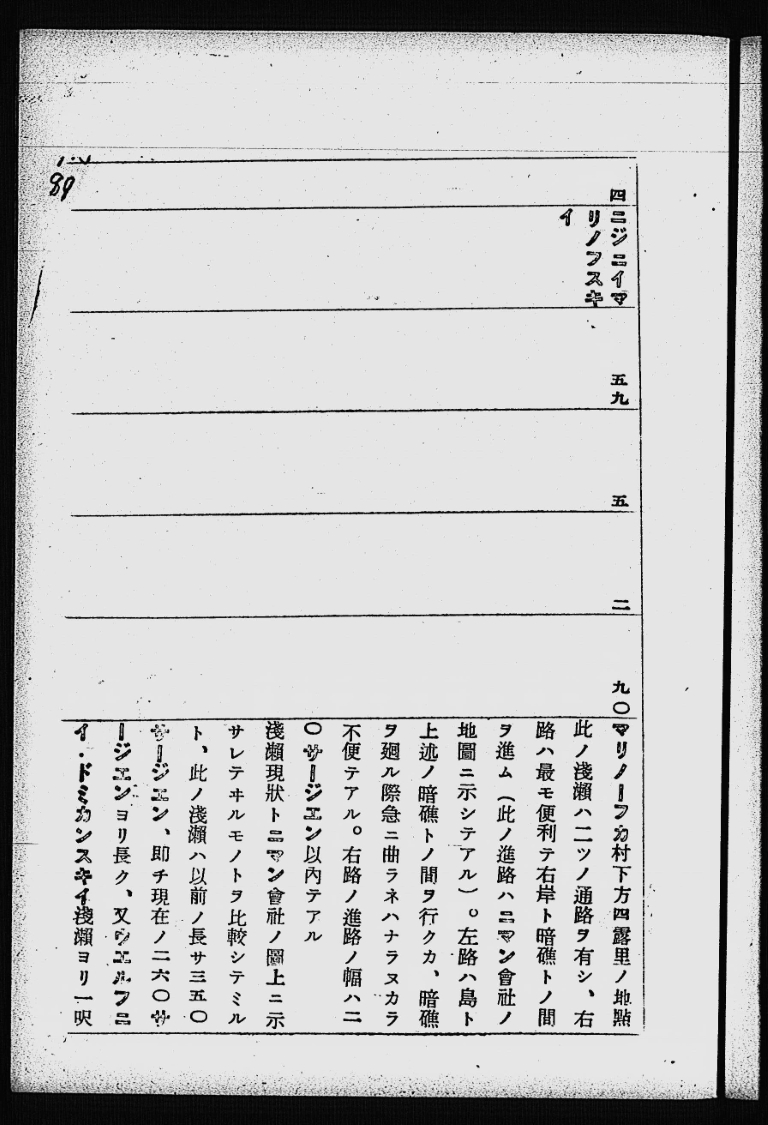 四
ニジニイマ
リノフスキ
イ
五九
五
二
九〇
マリノーフカ村下方四露里ノ地點
此ノ淺瀬ハ二ツノ通路ヲ有シ、右
路ハ最モ便利テ右岸ト暗礁トノ間
ヲ進ム（此ノ進路ハニマン會社ノ
地圖ニ示シテアル）。左路ハ島ト
上述ノ暗礁トノ間ヲ行クカ、暗礁
ヲ廻ル際急ニ曲ラネハナラヌカラ
不便テアル。右路ノ進路ノ幅ハ二
〇サージエン以內テアル
淺瀬現狀トニマン會社ノ圖上ニ示
サレテヰルモノトヲ比較シテミル
ト、此ノ淺瀬ハ以前ノ長サ三五〇
サージエン、即チ現在ノ二六〇サ
ージエンヨリ長ク、又ウエルフニ
イ・ドミカンスキイ淺瀬ヨリ一呎
89